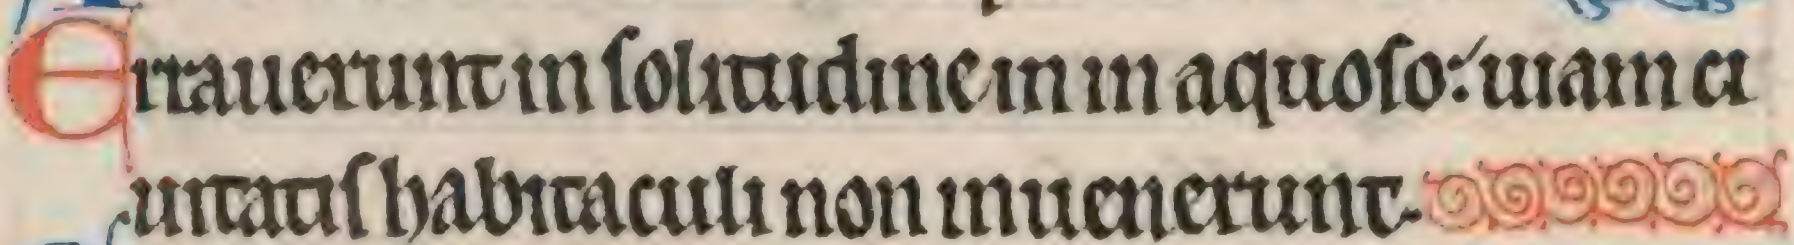 Errauerunt in solitudine in in aquoso: uiam ci
uitatis habitaculi non inuenerunt.